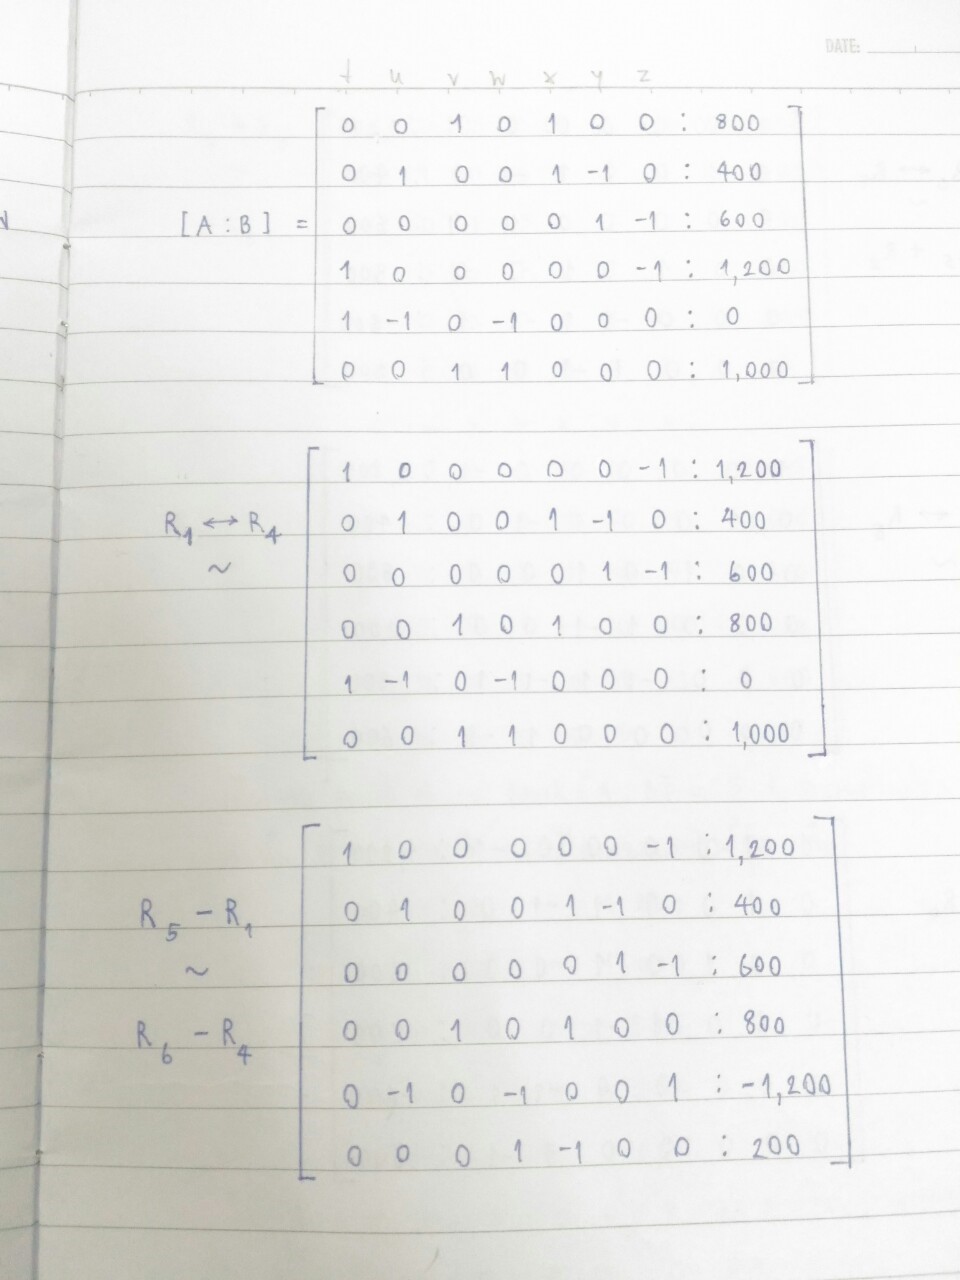 DATE:
t u v w x y z
0 0 1 0 1 0 0 : 800
0 1 0 0 1 -1 0 : 400
[A : B] = 0 0 0 0 0 1 -1 : 600
1 0 0 0 0 0 -1 : 1,200
1 -1 0 -1 0 0 0 : 0
0 0 1 1 0 0 0 : 1,000
1 0 0 0 0 0 -1 : 1,200
R1 ↔ R4 0 1 0 0 1 -1 0 : 400
~ 0 0 0 0 0 1 -1 : 600
0 0 1 0 1 0 0 : 800
1 -1 0 -1 0 0 0 : 0
0 0 1 1 0 0 0 : 1,000
1 0 0 0 0 0 -1 : 1,200
R5 - R1 0 1 0 0 1 -1 0 : 400
~ 0 0 0 0 0 1 -1 : 600
R6 - R4 0 0 1 0 1 0 0 : 800
0 -1 0 -1 0 0 1 : -1,200
0 0 0 1 -1 0 0 : 200